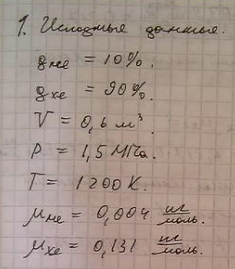 1. Исходные данные.
gне = 10%.
gхе = 90%.
V = 0,6 м³
P = 1,5 МПа.
T = 1200 К.
μне = 0,004 кг/моль.
μхе = 0,131 кг/моль.